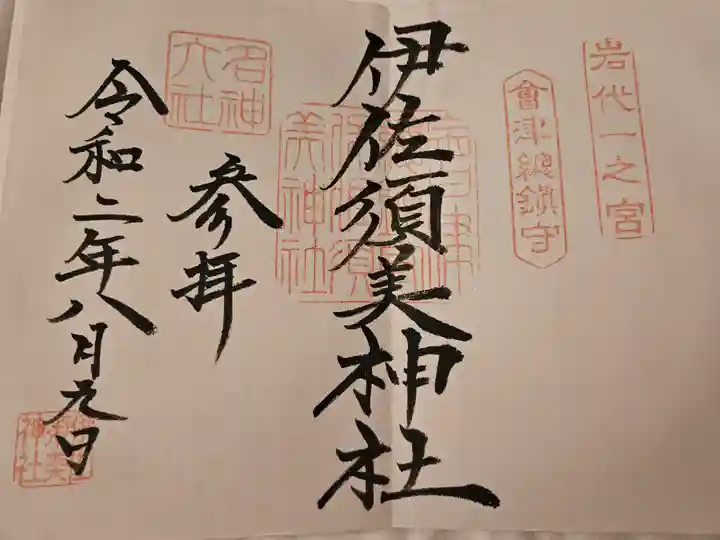 岩代一之宮
會津総鎮守
伊佐須美神社
名神
大社
参拝
令和二年八月元日